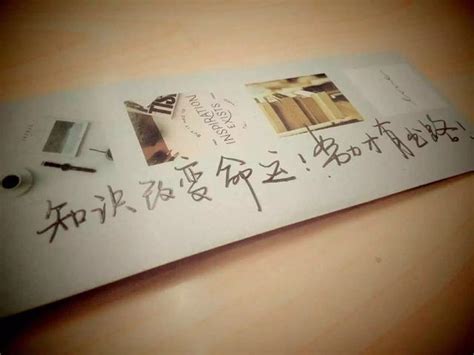 INSPIRATION
EXISTS
知识改变命运！努力才有出路！